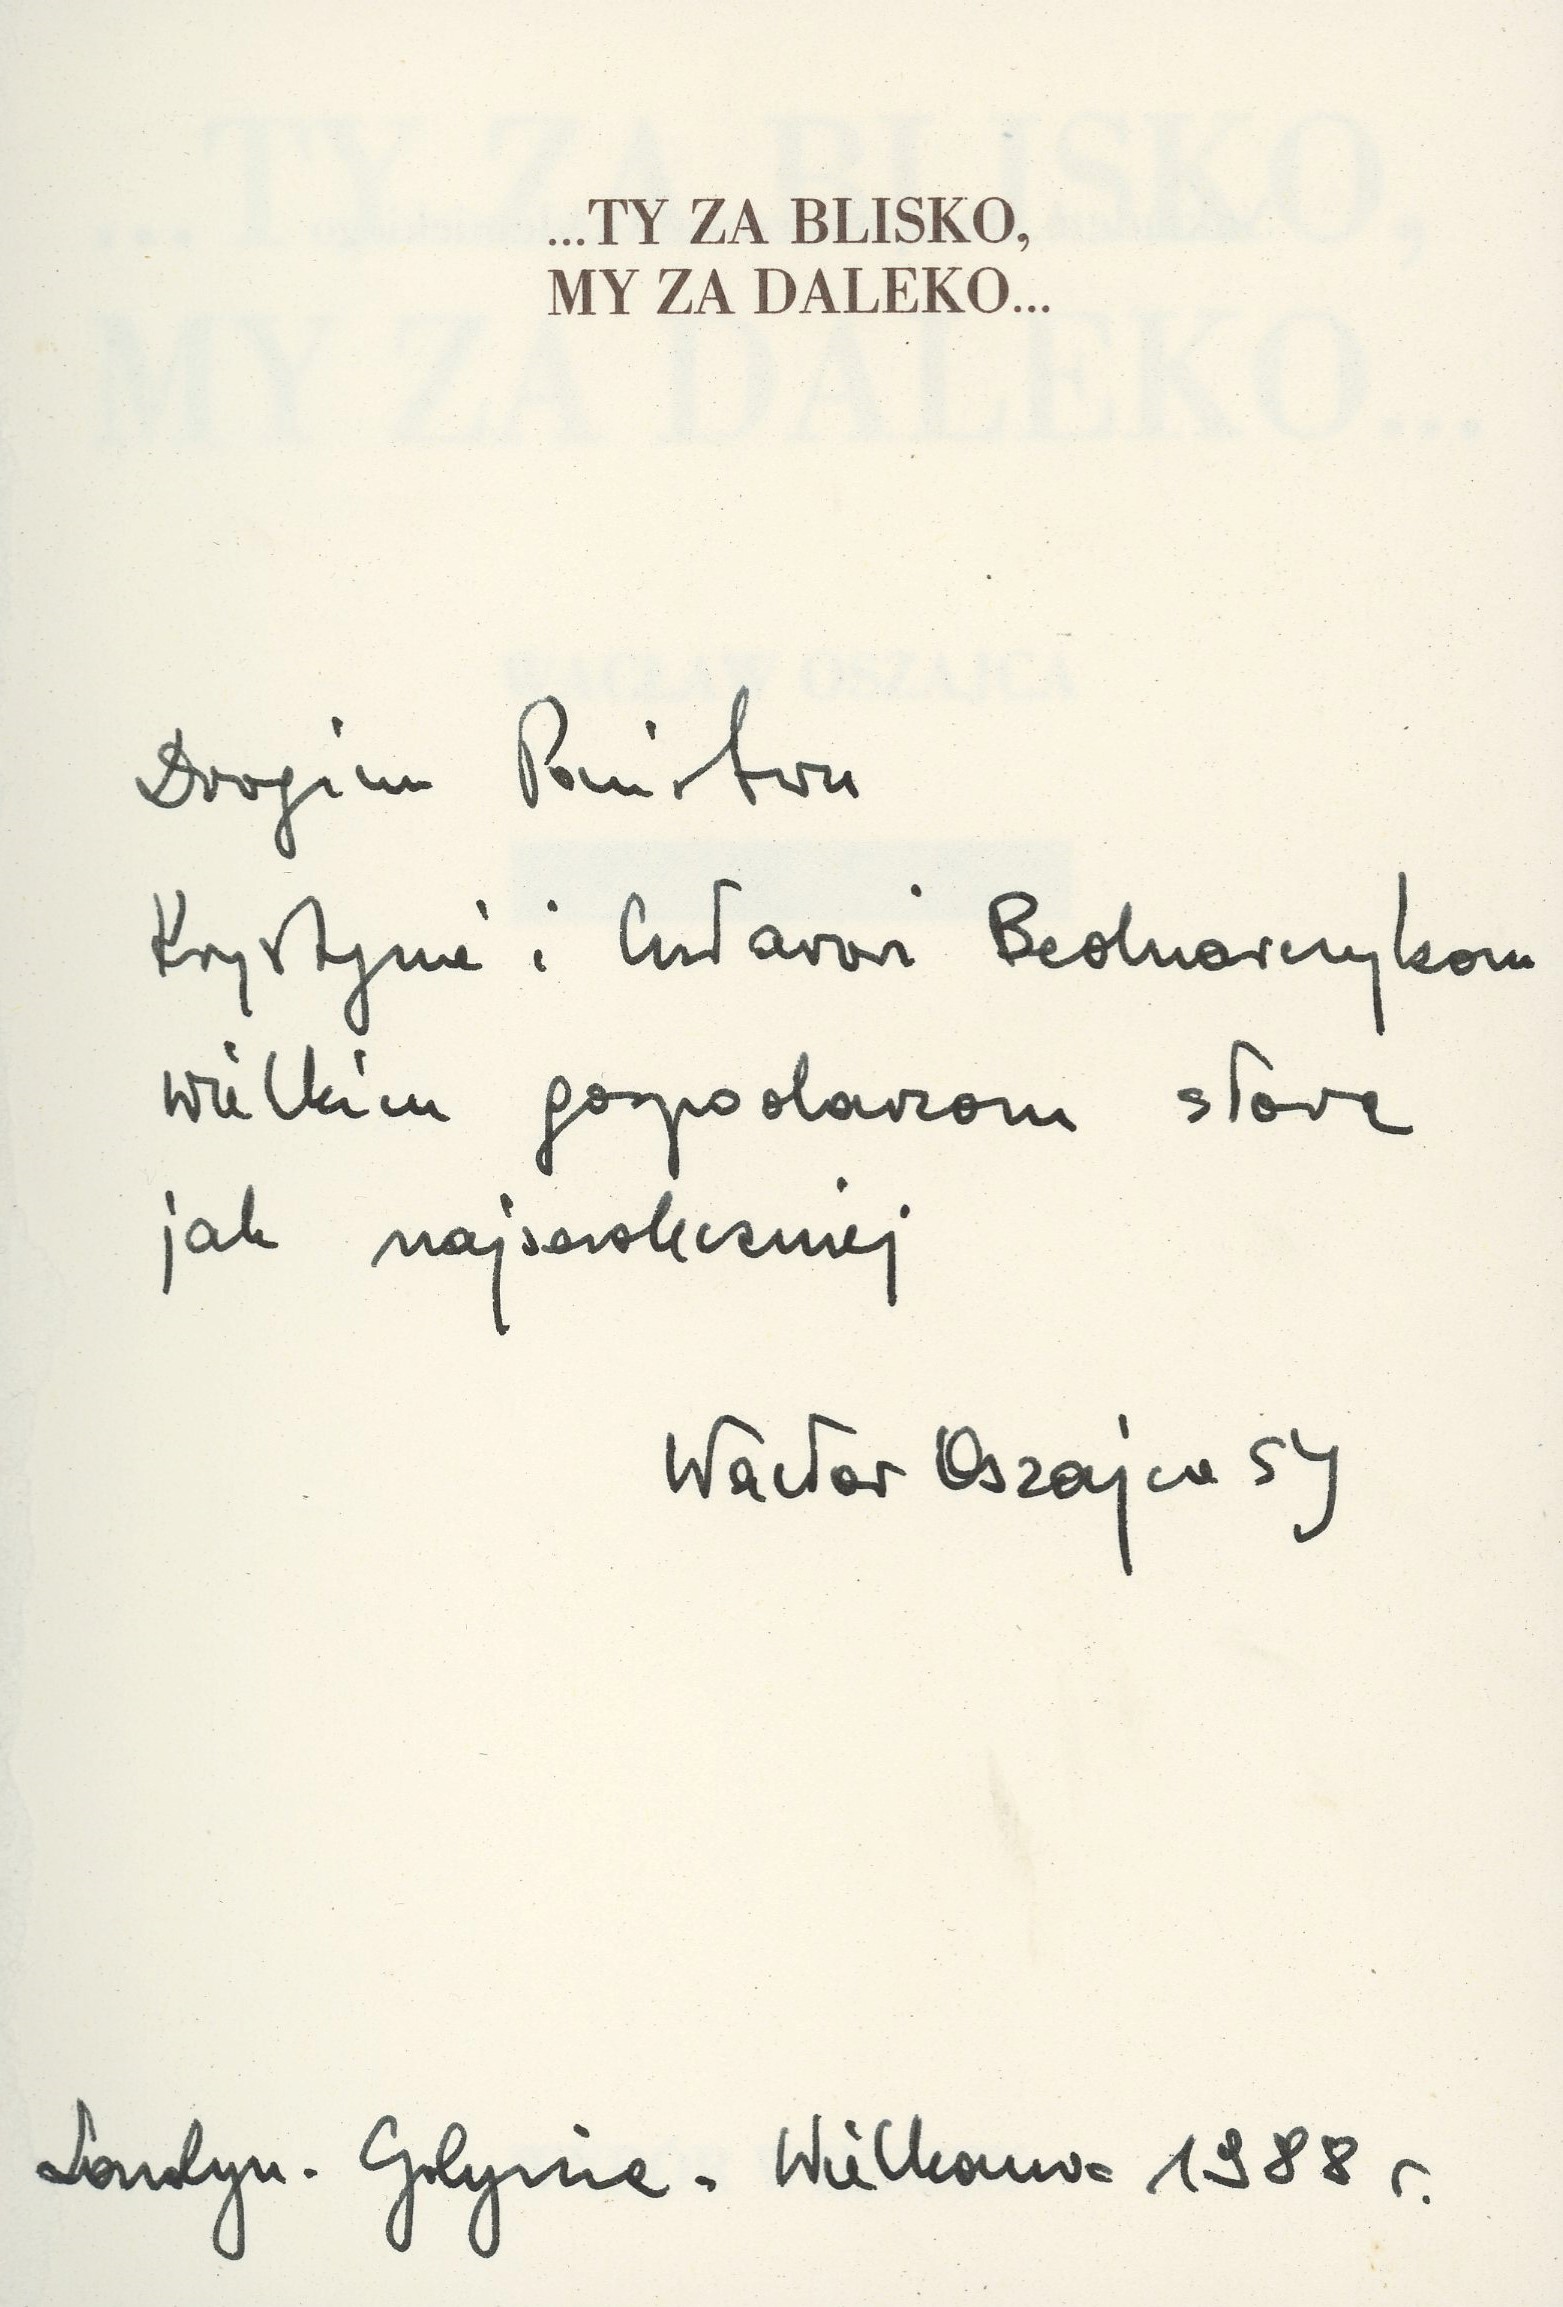 ...TY ZA BLISKO,
MY ZA DALEKO...
WACŁAW OSZAJCA
Drogim Państwu
Krystynie i Czesławowi Bednarczykom
wielkim gospodarzom słowa
jak najserdeczniej
Wacław Oszajca SJ
Londyn. Gdynia. Wielkanoc 1988 r.